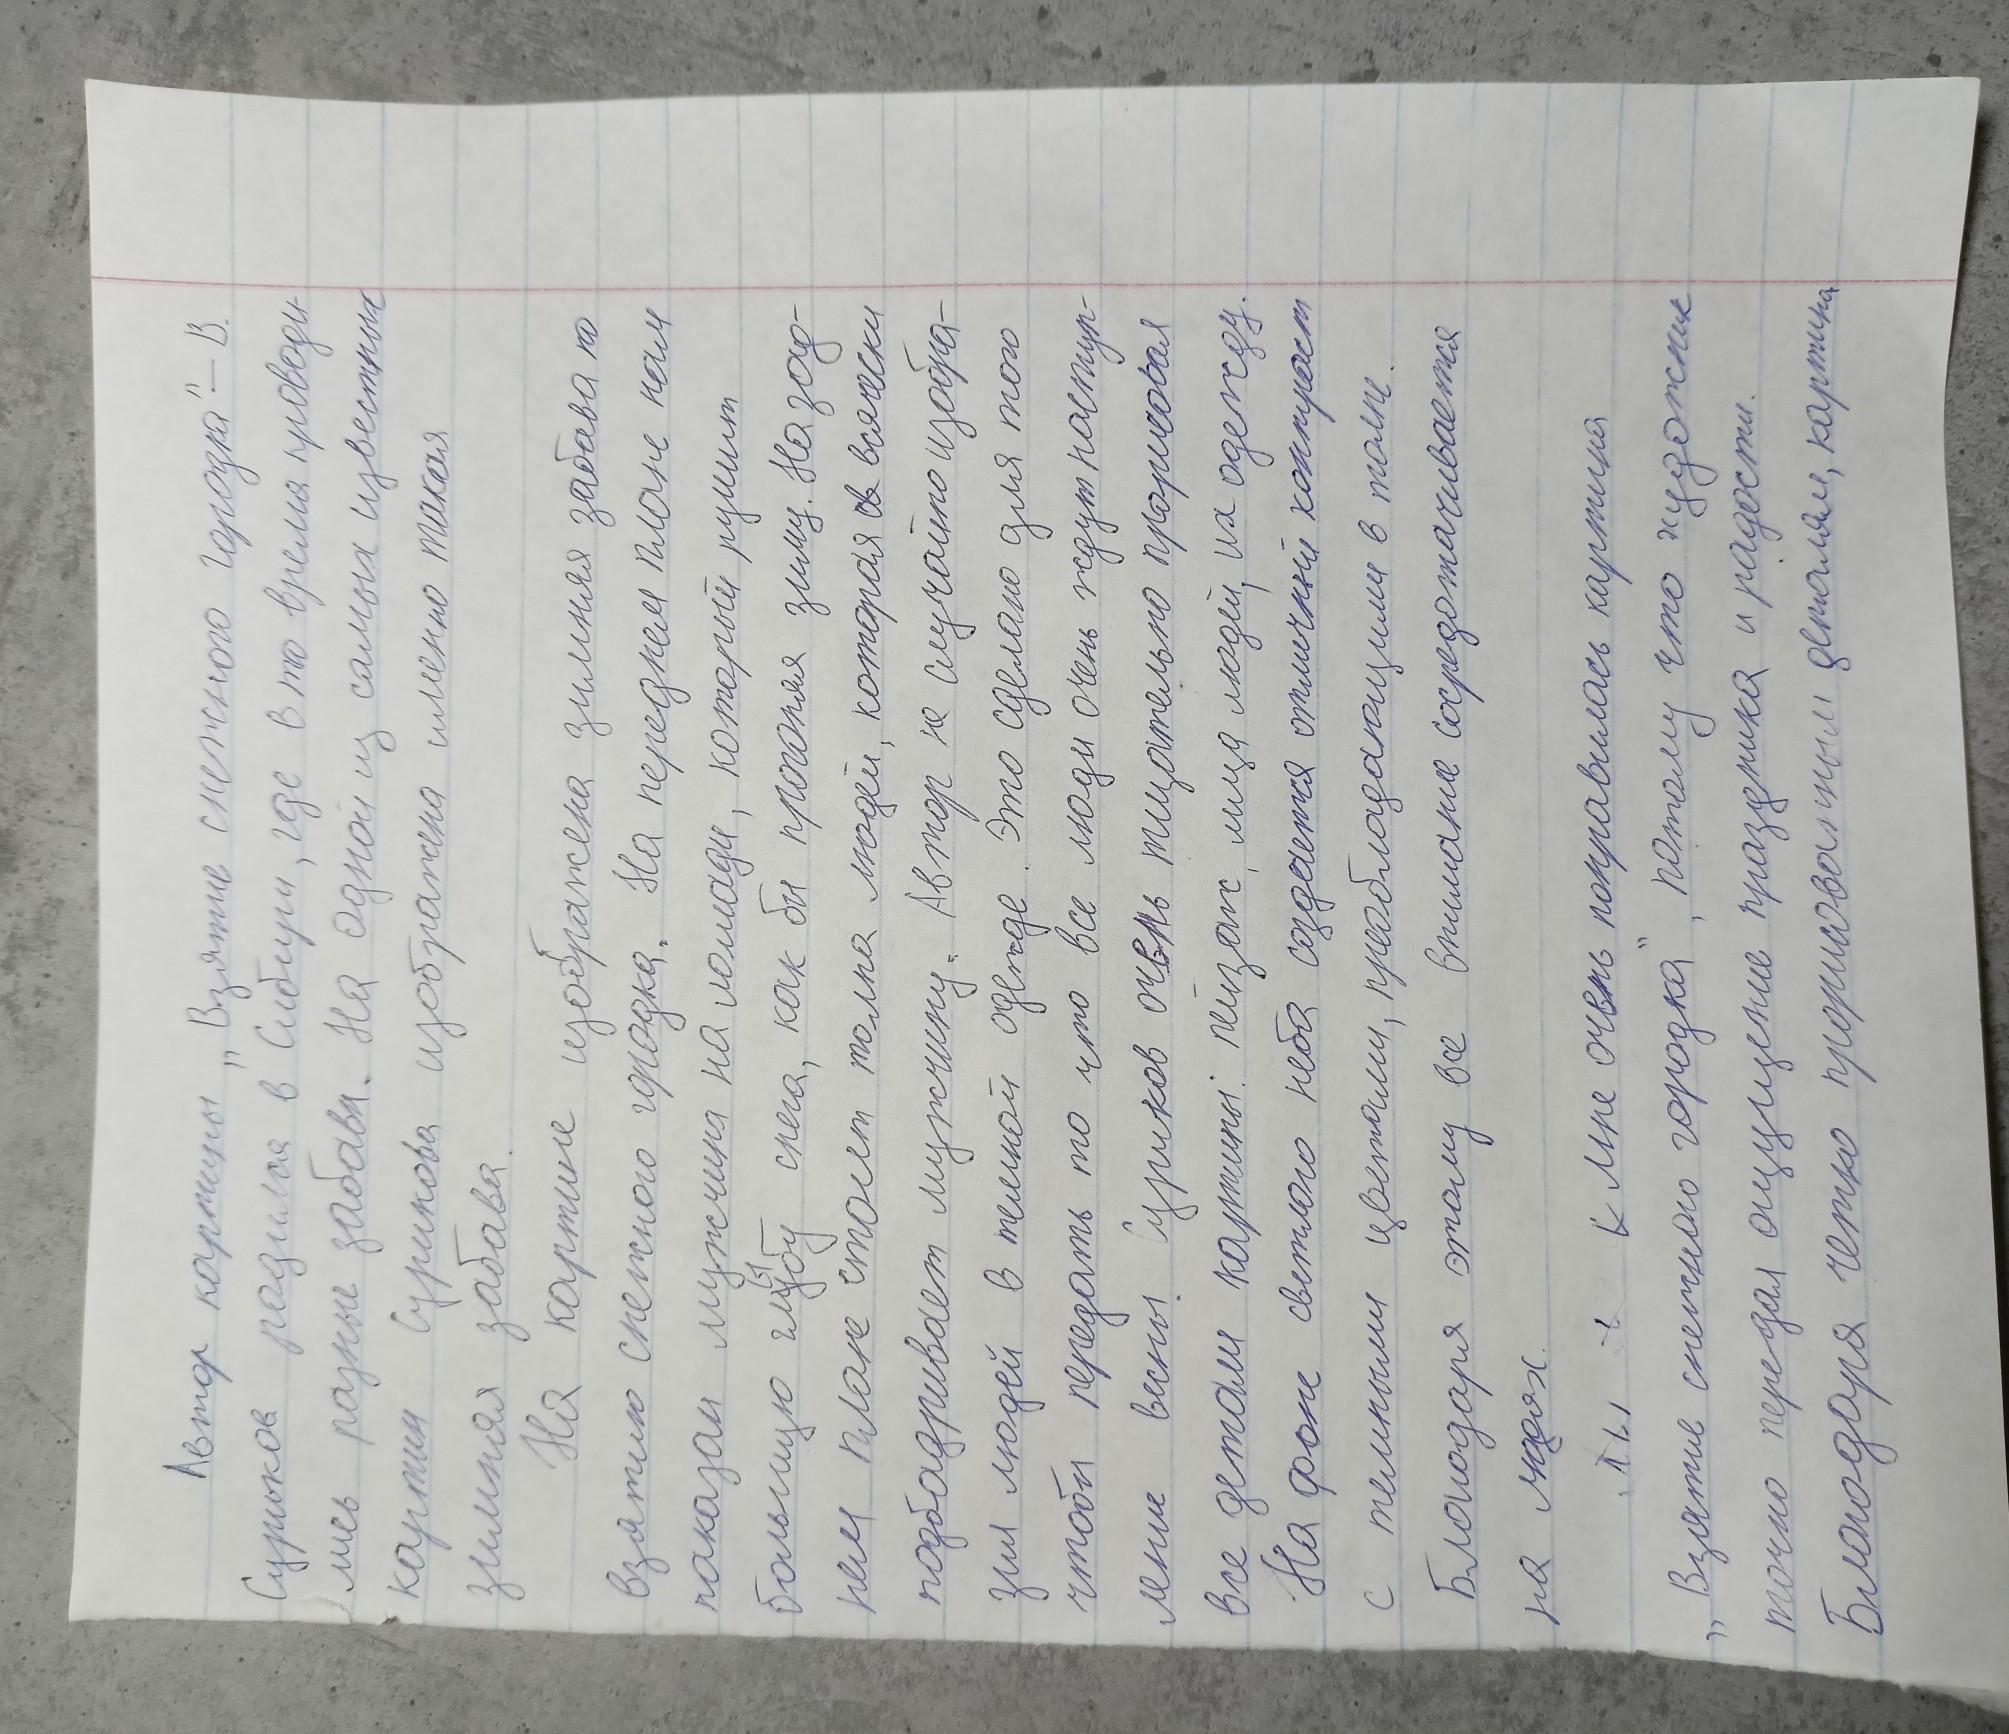 Автор картины „Взятие снежного городка" – В.
Суриков родился в Сибири, где в то время проводи-
лись разные забавы. На одной из самых известных
картин Сурикова изображена именно такая
зимняя забава.
На картине изображена зимняя забава по
взятию снежного городка. На переднем плане нам
показан мужчина на лошади, который рушит
большую глыбу снега, как бы прогоняя зиму. На зад-
нем плане стоит толпа людей, которая всячески
подбадривает мужчину. Автор не случайно изобра-
зил людей в темной одежде. Это сделано для того
чтобы передать то что все люди очень ждут наступ-
ление весны. Суриков очень тщательно прорисовал
все детали картины: пейзаж, лица людей, их одежду.
На фоне светлого неба создается отличный контраст
с темными цветами, преобладающими в толпе.
Благодаря этому все внимание сосредотачивается
на людях.
К мне очень понравилась картина
„Взятие снежного городка", потому что художник
точно передал ощущение праздника и радости.
Благодаря четко прорисованным деталям, картина